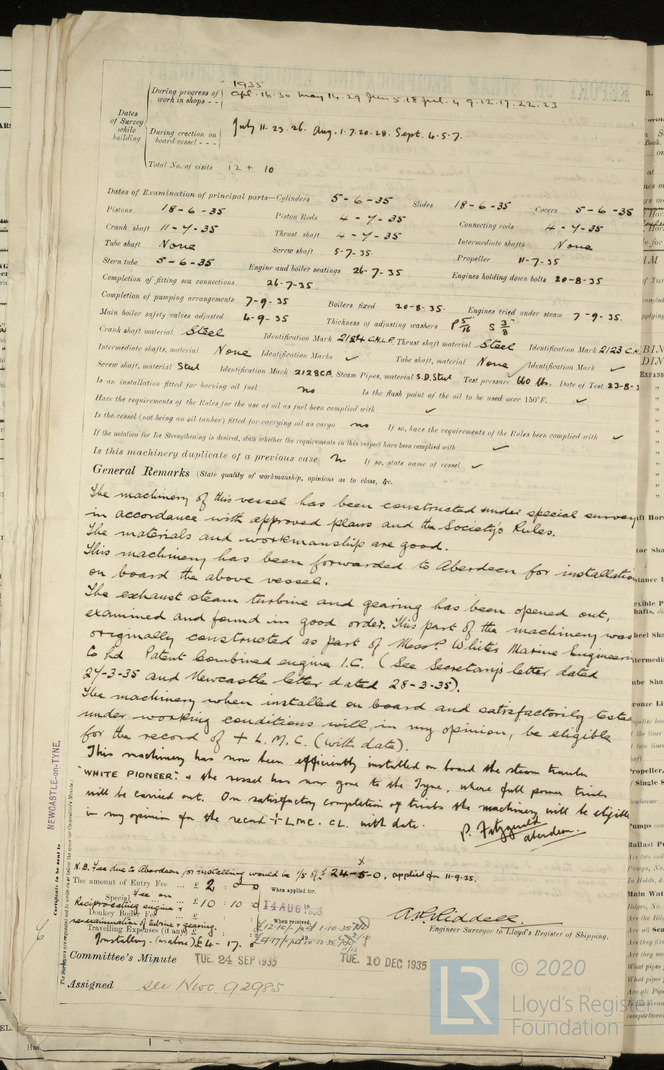 1935
During progress of work in shops - - Apl. 16. 30 May 14. 29 Jun 5. 18 Jul. 4. 9. 12. 17. 22. 23
Dates of Survey while building
During erection on board vessel - - - July 11. 23. 26. Aug. 1. 7. 20. 28. Sept. 4. 5. 7.
Total No. of visits 12 + 10
Dates of Examination of principal parts—Cylinders 5-6-35 Slides 18-6-35 Covers 5-6-35
Pistons 18-6-35 Piston Rods 4-7-35 Connecting rods 4-7-35
Crank shaft 11-7-35 Thrust shaft 4-7-35 Intermediate shafts None
Tube shaft None Screw shaft 5-7-35 Propeller 11-7-35
Stern tube 5-6-35 Engine and boiler seatings 26-7-35 Engines holding down bolts 20-8-35
Completion of fitting sea connections 26-7-35
Completion of pumping arrangements 7-9-35 Boilers fixed 20-8-35. Engines tried under steam 7-9-35.
Main boiler safety valves adjusted 4-9-35 Thickness of adjusting washers P 5/16 S 3/8
Crank shaft material Steel Identification Mark 2184 Thrust shaft material Steel Identification Mark 2123
Intermediate shafts, material None Identification Marks ✓ Tube shaft, material None Identification Mark ✓
Screw shaft, material Steel Identification Mark 2128 Steam Pipes, material S.D. Steel Test pressure 660 lbs. Date of Test 23-8-3
Is an installation fitted for burning oil fuel no Is the flash point of the oil to be used over 150°F. ✓
Have the requirements of the Rules for the use of oil as fuel been complied with ✓
Is the vessel (not being an oil tanker) fitted for carrying oil as cargo no If so, have the requirements of the Rules been complied with ✓
If the notation for Ice Strengthening is desired, state whether the requirements in this respect have been complied with ✓
Is this machinery duplicate of a previous case No If so, state name of vessel ✓
General Remarks (State quality of workmanship, opinions as to class, &c.
The machinery of this vessel has been constructed under special survey
in accordance with approved plans and the Society's Rules.
The materials and workmanship are good.
This machinery has been forwarded to Aberdeen for installation
on board the above vessel.
The exhaust steam turbine and gearing has been opened out,
examined and found in good order. This part of the machinery was
originally constructed as part of Messrs White's Marine Engineering
Co Ld Patent Combined engine I.C. (See Secretary's letter dated
27-3-35 and Newcastle letter dated 28-3-35).
The machinery when installed on board and satisfactorily tested
under working conditions will in my opinion, be eligible
for the record of + L.M.C. (with date).
This machinery has now been efficiently installed on board the steam trawler
"WHITE PIONEER". & the vessel has now gone to the Tyne, where full power trials
will be carried out. On satisfactory completion of trials the machinery will be eligible
in my opinion for the record + LMC. CL. with date.
P. Fitzgerald
Aberdeen.
NEWCASTLE-on-TYNE.
Certificate to be sent to
N.B. Fee due to Aberdeen for installing would be 1/5 of £ 24-5-0, applied for 11-9-35.
The amount of Entry Fee .. £ 2 : 0 : 0 When applied for,
Special Fee on Reciprocating engine & £ 10 : 10 : 0 14 AUG 1935
Donkey Boiler Fee
re-examination of turbine & gearing. When received,
Travelling Expenses (if any) £
Installing £ 4 - 17. 0
A. R. Riddell.
Engineer Surveyor to Lloyd's Register of Shipping.
Committee's Minute TUE. 24 SEP 1935 TUE. 10 DEC 1935
Assigned see Nwc 92985
© 2020
Lloyd's Register
Foundation
LR